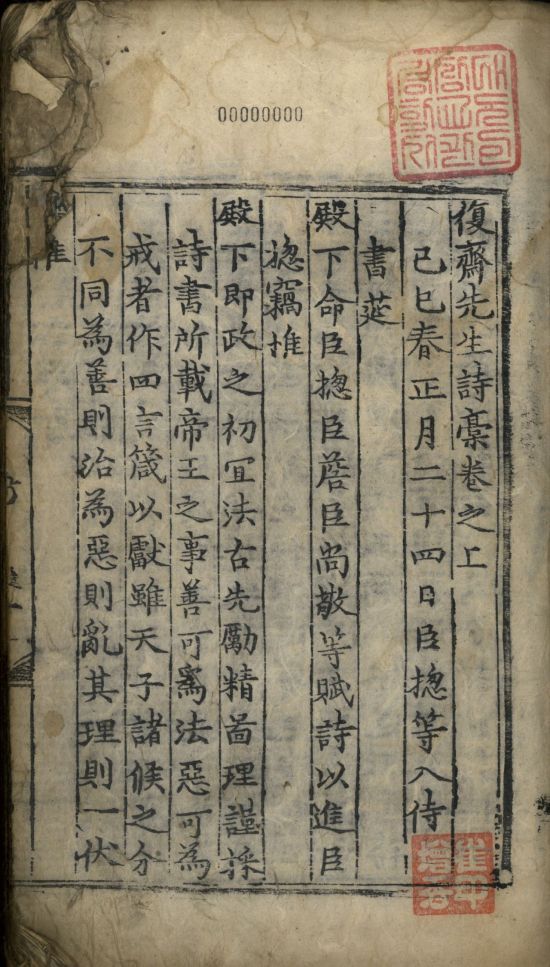 00000000
復齋先生詩藁卷之上
己巳春正月二十四日臣揔等入侍
書筵
殿下命臣揔臣蒼臣尚敬等賦詩以進臣
揔竊惟
殿下即政之初宜法古先勵精啚理謹採
詩書所載帝王之事善可爲法惡可為
戒者作四言箴以獻雖天子諸侯之分
不同為善則治為惡則亂其理則一伏
惟